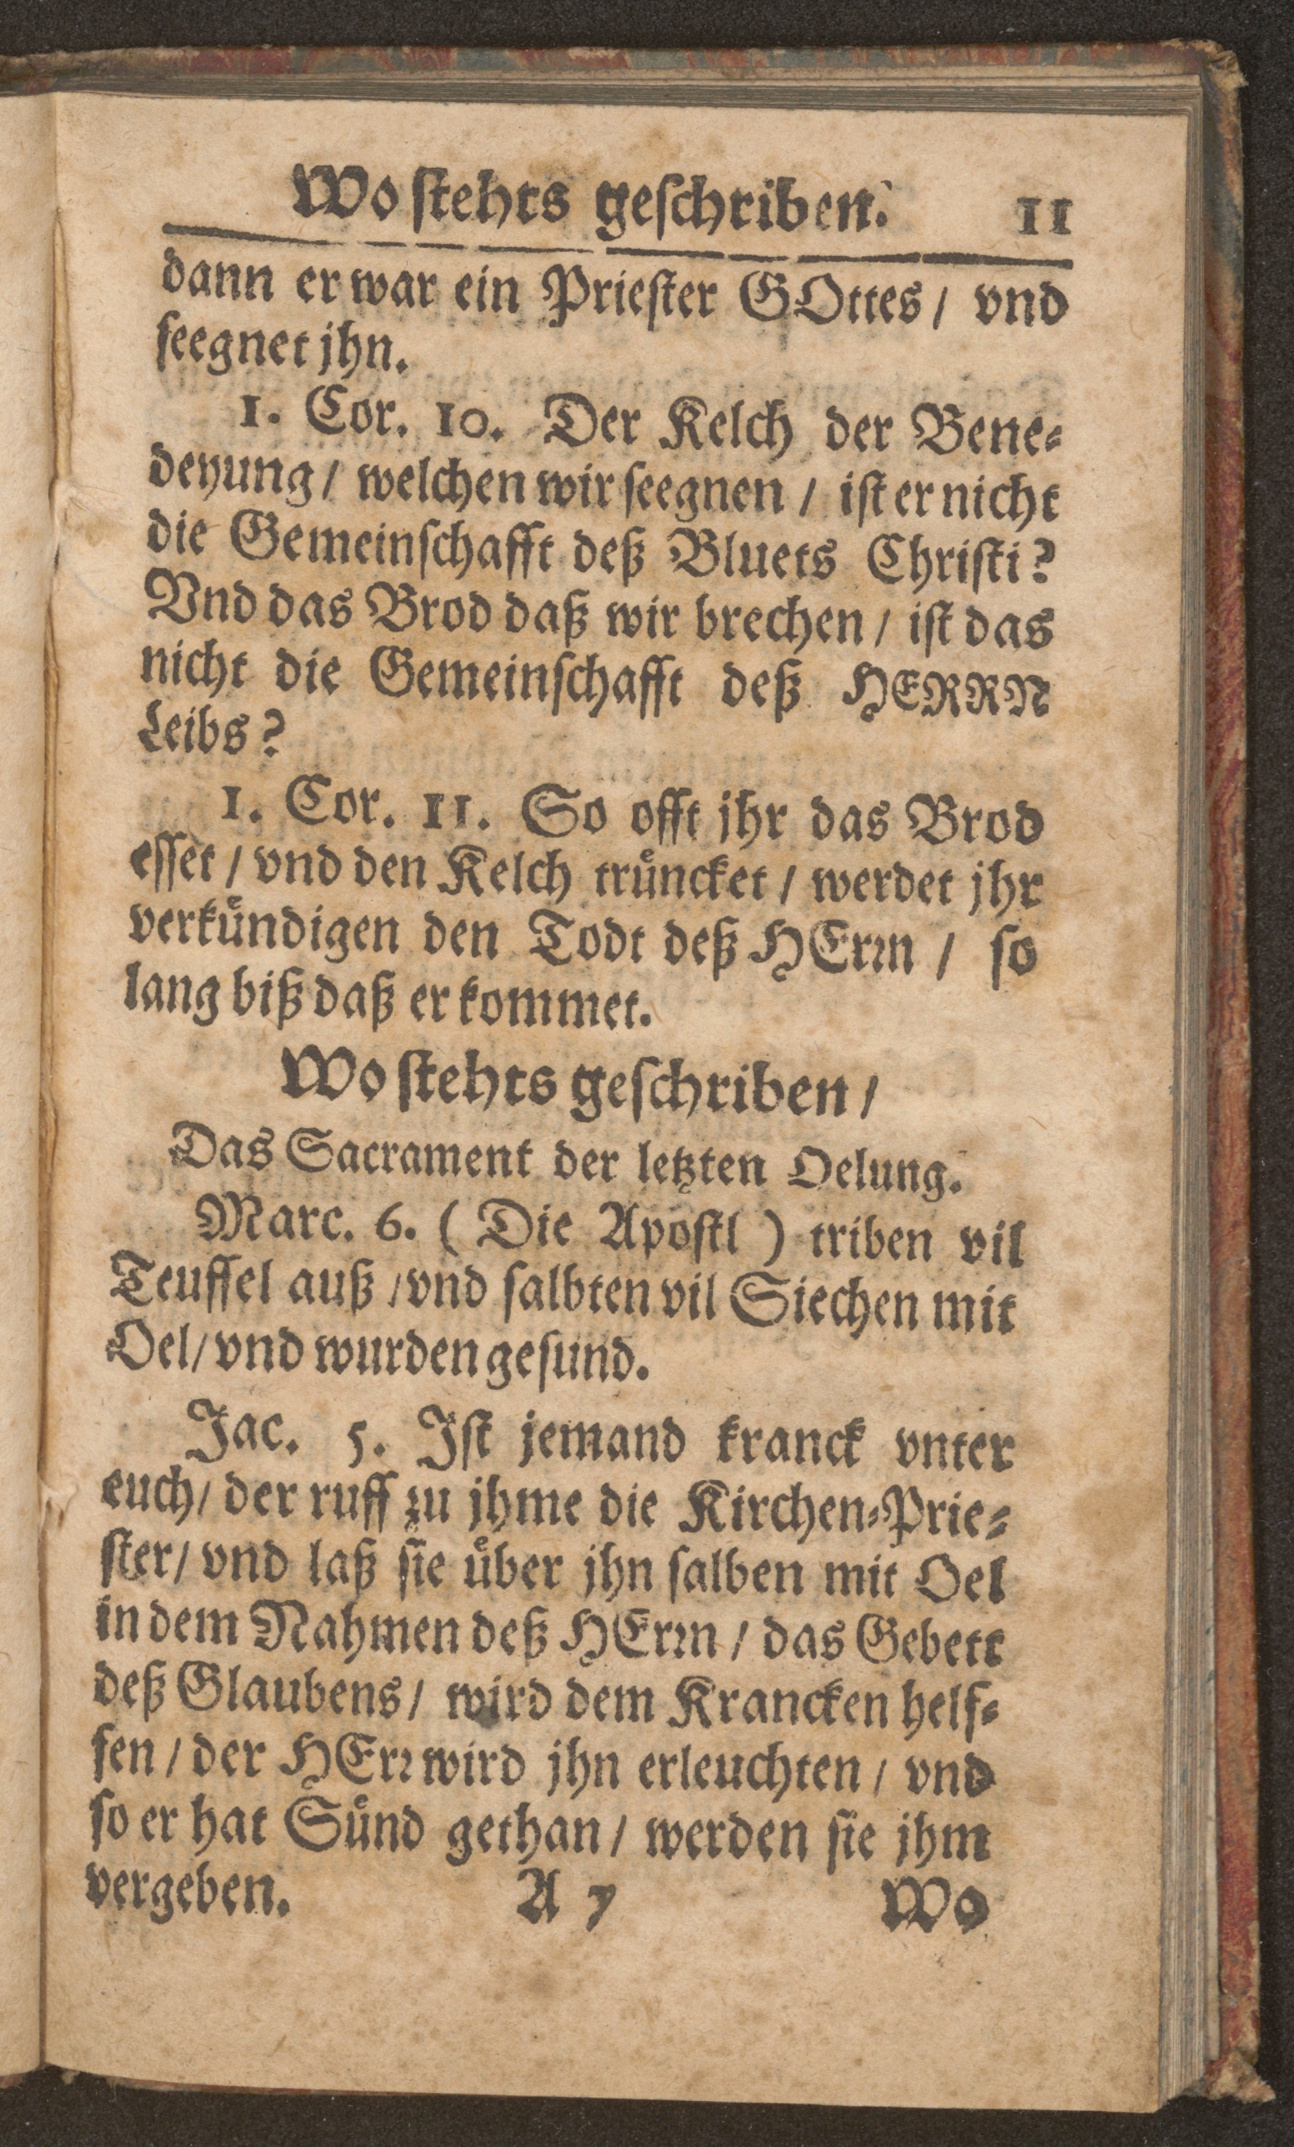 Wo stehts geschriben. 11
dann er war ein Priester GOttes / vnd
seegnet jhn.
1. Cor. 10. Der Kelch der Bene-
deyung / welchen wir seegnen / ist er nicht
die Gemeinschafft deß Bluets Christi?
Vnd das Brod daß wir brechen / ist das
nicht die Gemeinschafft deß HERRN
Leibs?
1. Cor. 11. So offt jhr das Brod
esset / vnd den Kelch trüncket / werdet jhr
verkündigen den Todt deß HErrn / so
lang biß daß er kommet.
Wo stehts geschriben /
Das Sacrament der letzten Oelung.
Marc. 6. ( Die Apostl ) triben vil
Teuffel auß / vnd salbten vil Siechen mit
Oel / vnd wurden gesund.
Jac. 5. Ist jemand kranck vnter
euch / der ruff zu jhme die Kirchen-Prie-
ster / vnd laß sie über jhn salben mit Oel
in dem Nahmen deß HErrn / das Gebett
deß Glaubens / wird dem Krancken helf-
fen / der HErr wird jhn erleuchten / vnd
so er hat Sünd gethan / werden sie jhm
vergeben. A 7 Wo